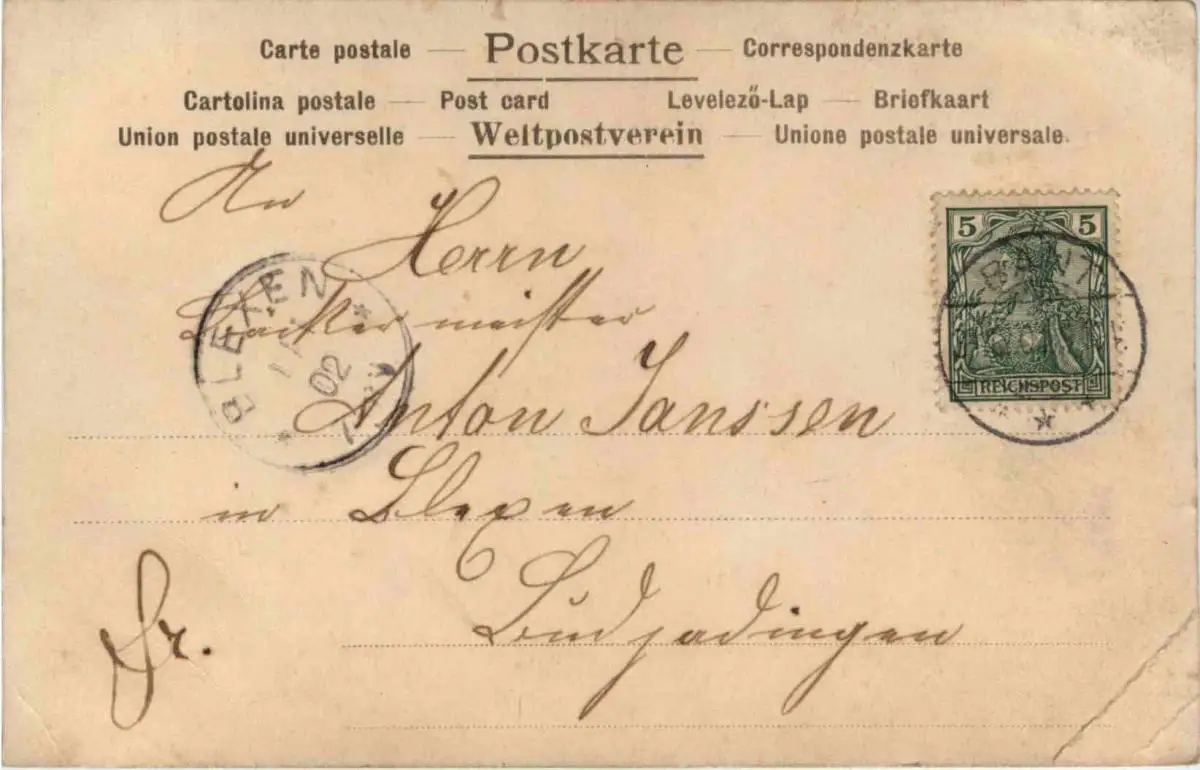 Carte postale — Postkarte — Correspondenzkarte
Cartolina postale — Post card Levelező-Lap — Briefkaart
Union postale universelle — Weltpostverein — Unione postale universale.
An
Herrn
meister
Anton Janssen
in Blexen
Budjadingen
Fr.
5 5
REICHSPOST
BANT
BLEXEN
02